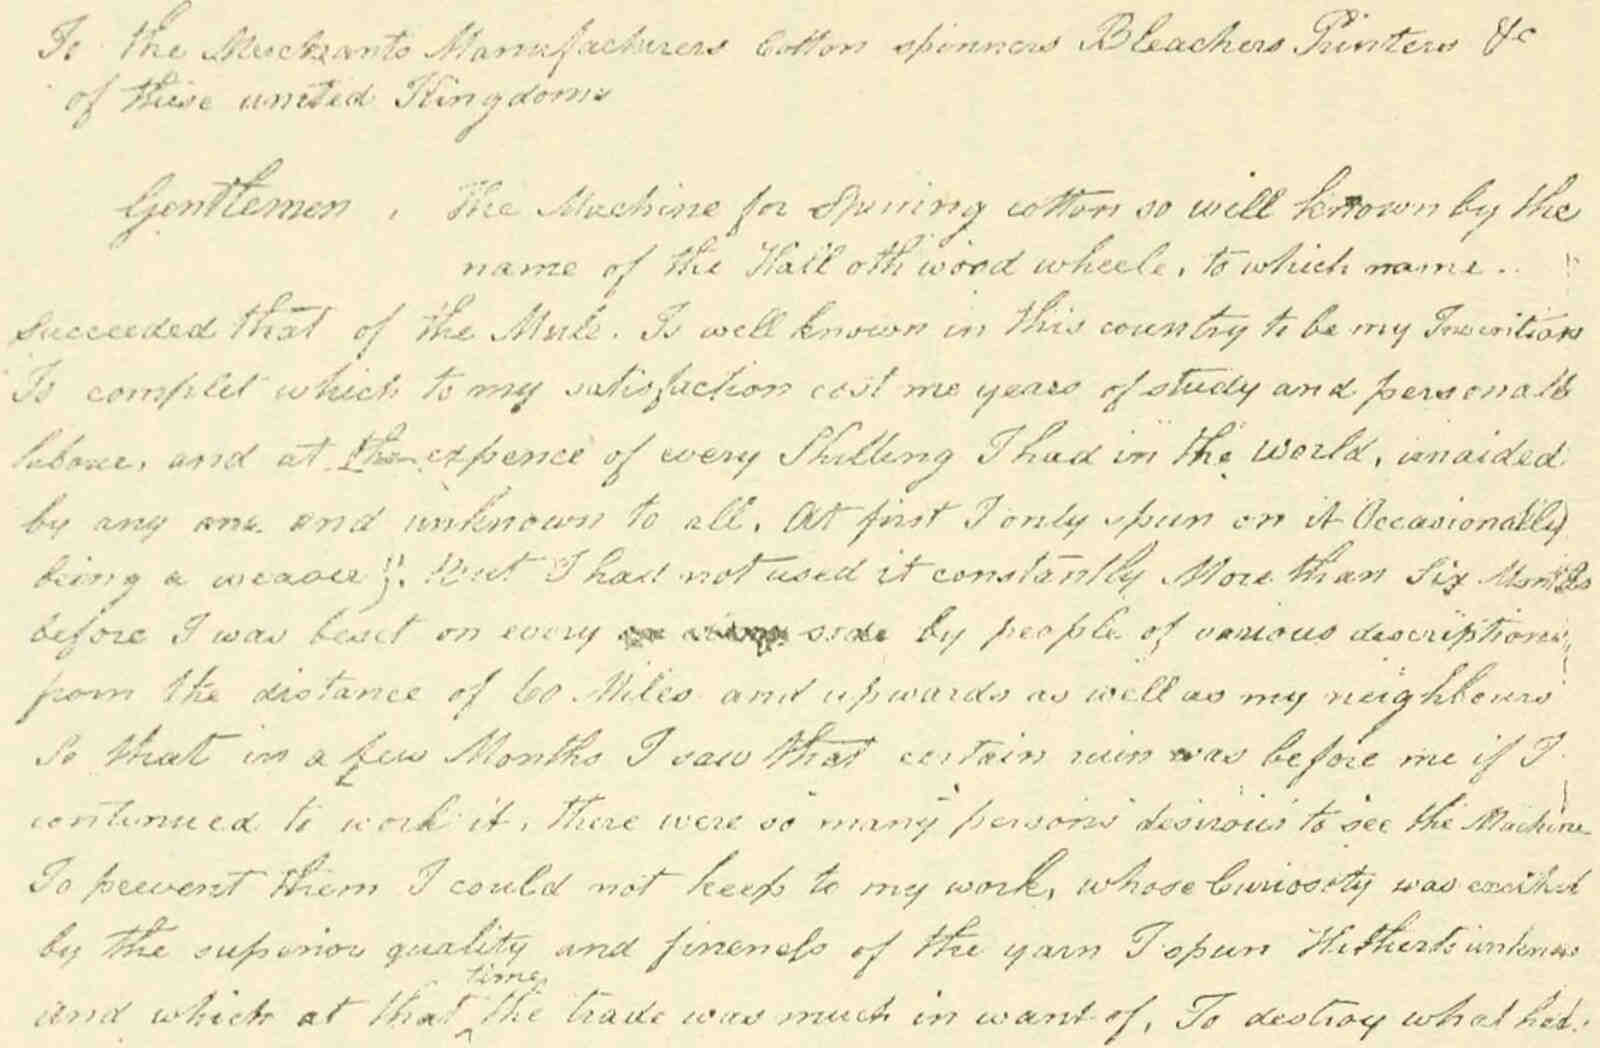 To the Merchants Manufacturers Cotton spinners Bleachers Printers &c
of these united Kingdoms
Gentlemen, The Machine for Spining cotton so well known by the
name of the Hall oth wood wheele, to which name..
succeeded that of the Mule. Is well known in this country to be my Invention
To complet which to my satisfaction cost me years of study and personall
laboure, and at the expence of every Shilling I had in the world, unaided
by any one and unknown to all, At first I only spun on it Occasionally
being a weaver). But I had not used it constantly More than Six Months
before I was beset on every side by people of various descriptions
from the distance of 60 Miles and upwards as well as my neighbours
So that in a few Months I saw that certain ruin was before me if I
continued to work it, there were so many persons desirous to see the Machine
To prevent them I could not keep to my work, whose Curiosity was excited
by the superior quality and fineness of the yarn I spun Hitherto unknown
and which at that time the trade was much in want of, To destroy what had